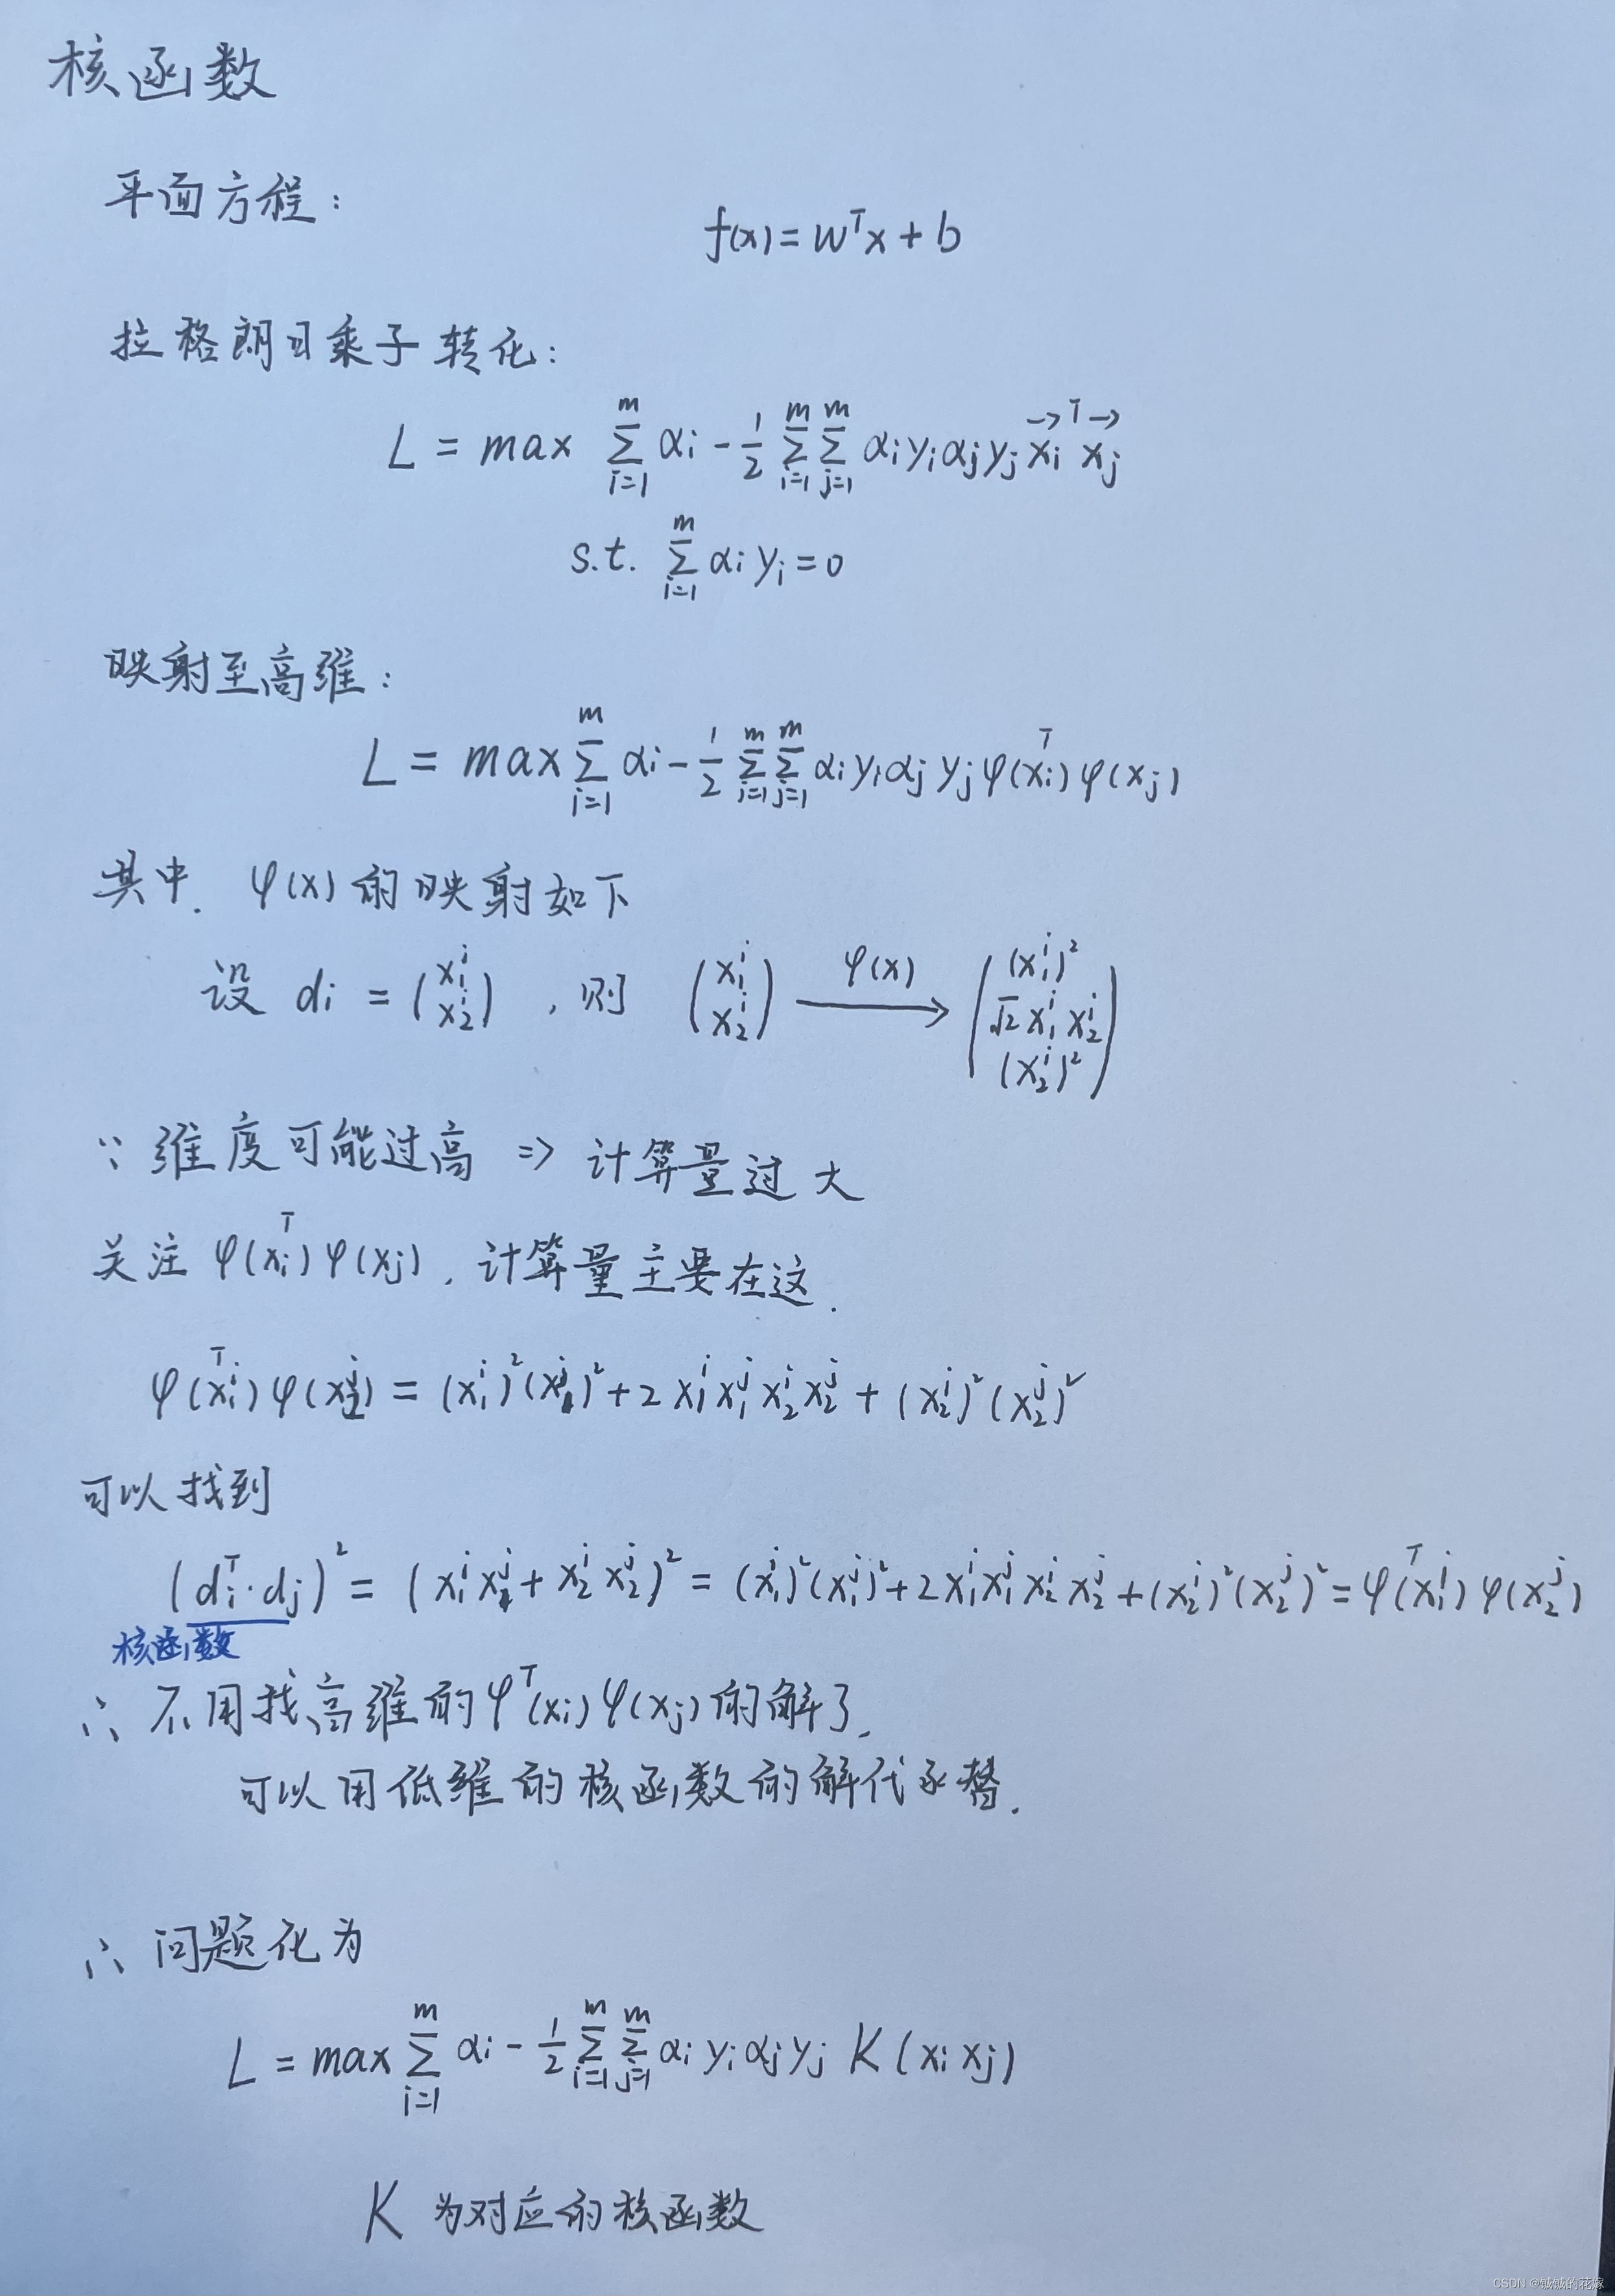 核函数
平面方程：
f(x)=wᵀx+b
拉格朗日乘子转化：
L = max ∑_{i=1}^{m} αi - 1/2 ∑_{i=1}^{m} ∑_{j=1}^{m} αi yi αj yj x⃗iᵀ x⃗j
s.t. ∑_{i=1}^{m} αi yi = 0
映射至高维：
L = max ∑_{i=1}^{m} αi - 1/2 ∑_{i=1}^{m} ∑_{j=1}^{m} αi yi αj yj φ(xi)ᵀ φ(xj)
其中. φ(x) 的映射如下
设 di = (x₁ⁱ x₂ⁱ) , 则 (x₁ⁱ x₂ⁱ) —φ(x)→ ((x₁ⁱ)² √2 x₁ⁱ x₂ⁱ (x₂ⁱ)²)
∵ 维度可能过高 => 计算量过大
关注 φ(xi)ᵀ φ(xj) , 计算量主要在这.
φ(x₁ⁱ)ᵀ φ(x₂ʲ) = (x₁ⁱ)² (x₁ʲ)² + 2 x₁ⁱ x₁ʲ x₂ⁱ x₂ʲ + (x₂ⁱ)² (x₂ʲ)²
可以找到
(diᵀ·dj)² = (x₁ⁱ x₁ʲ + x₂ⁱ x₂ʲ)² = (x₁ⁱ)² (x₁ʲ)² + 2 x₁ⁱ x₁ʲ x₂ⁱ x₂ʲ + (x₂ⁱ)² (x₂ʲ)² = φ(x₁ⁱ)ᵀ φ(x₂ʲ)
核函数
∴ 不用找高维的 φᵀ(xi) φ(xj) 的解了.
可以用低维的核函数的解代替.
∴ 问题化为
L = max ∑_{i=1}^{m} αi - 1/2 ∑_{i=1}^{m} ∑_{j=1}^{m} αi yi αj yj K(xi xj)
K 为对应的核函数
CSDN @铖铖的花嫁